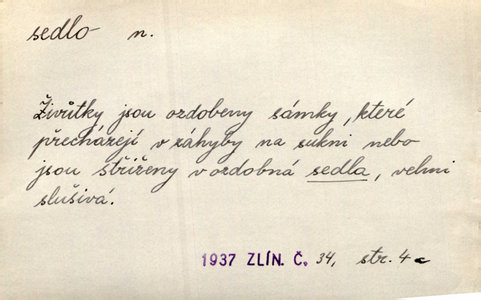 sedlo n.
Živůtky jsou ozdobeny sámky, které
přecházejí v záhyby na sukni nebo
jsou střiženy v ozdobná sedla, velmi
slušivá.
1937 ZLÍN. Č. 34, str. 4c